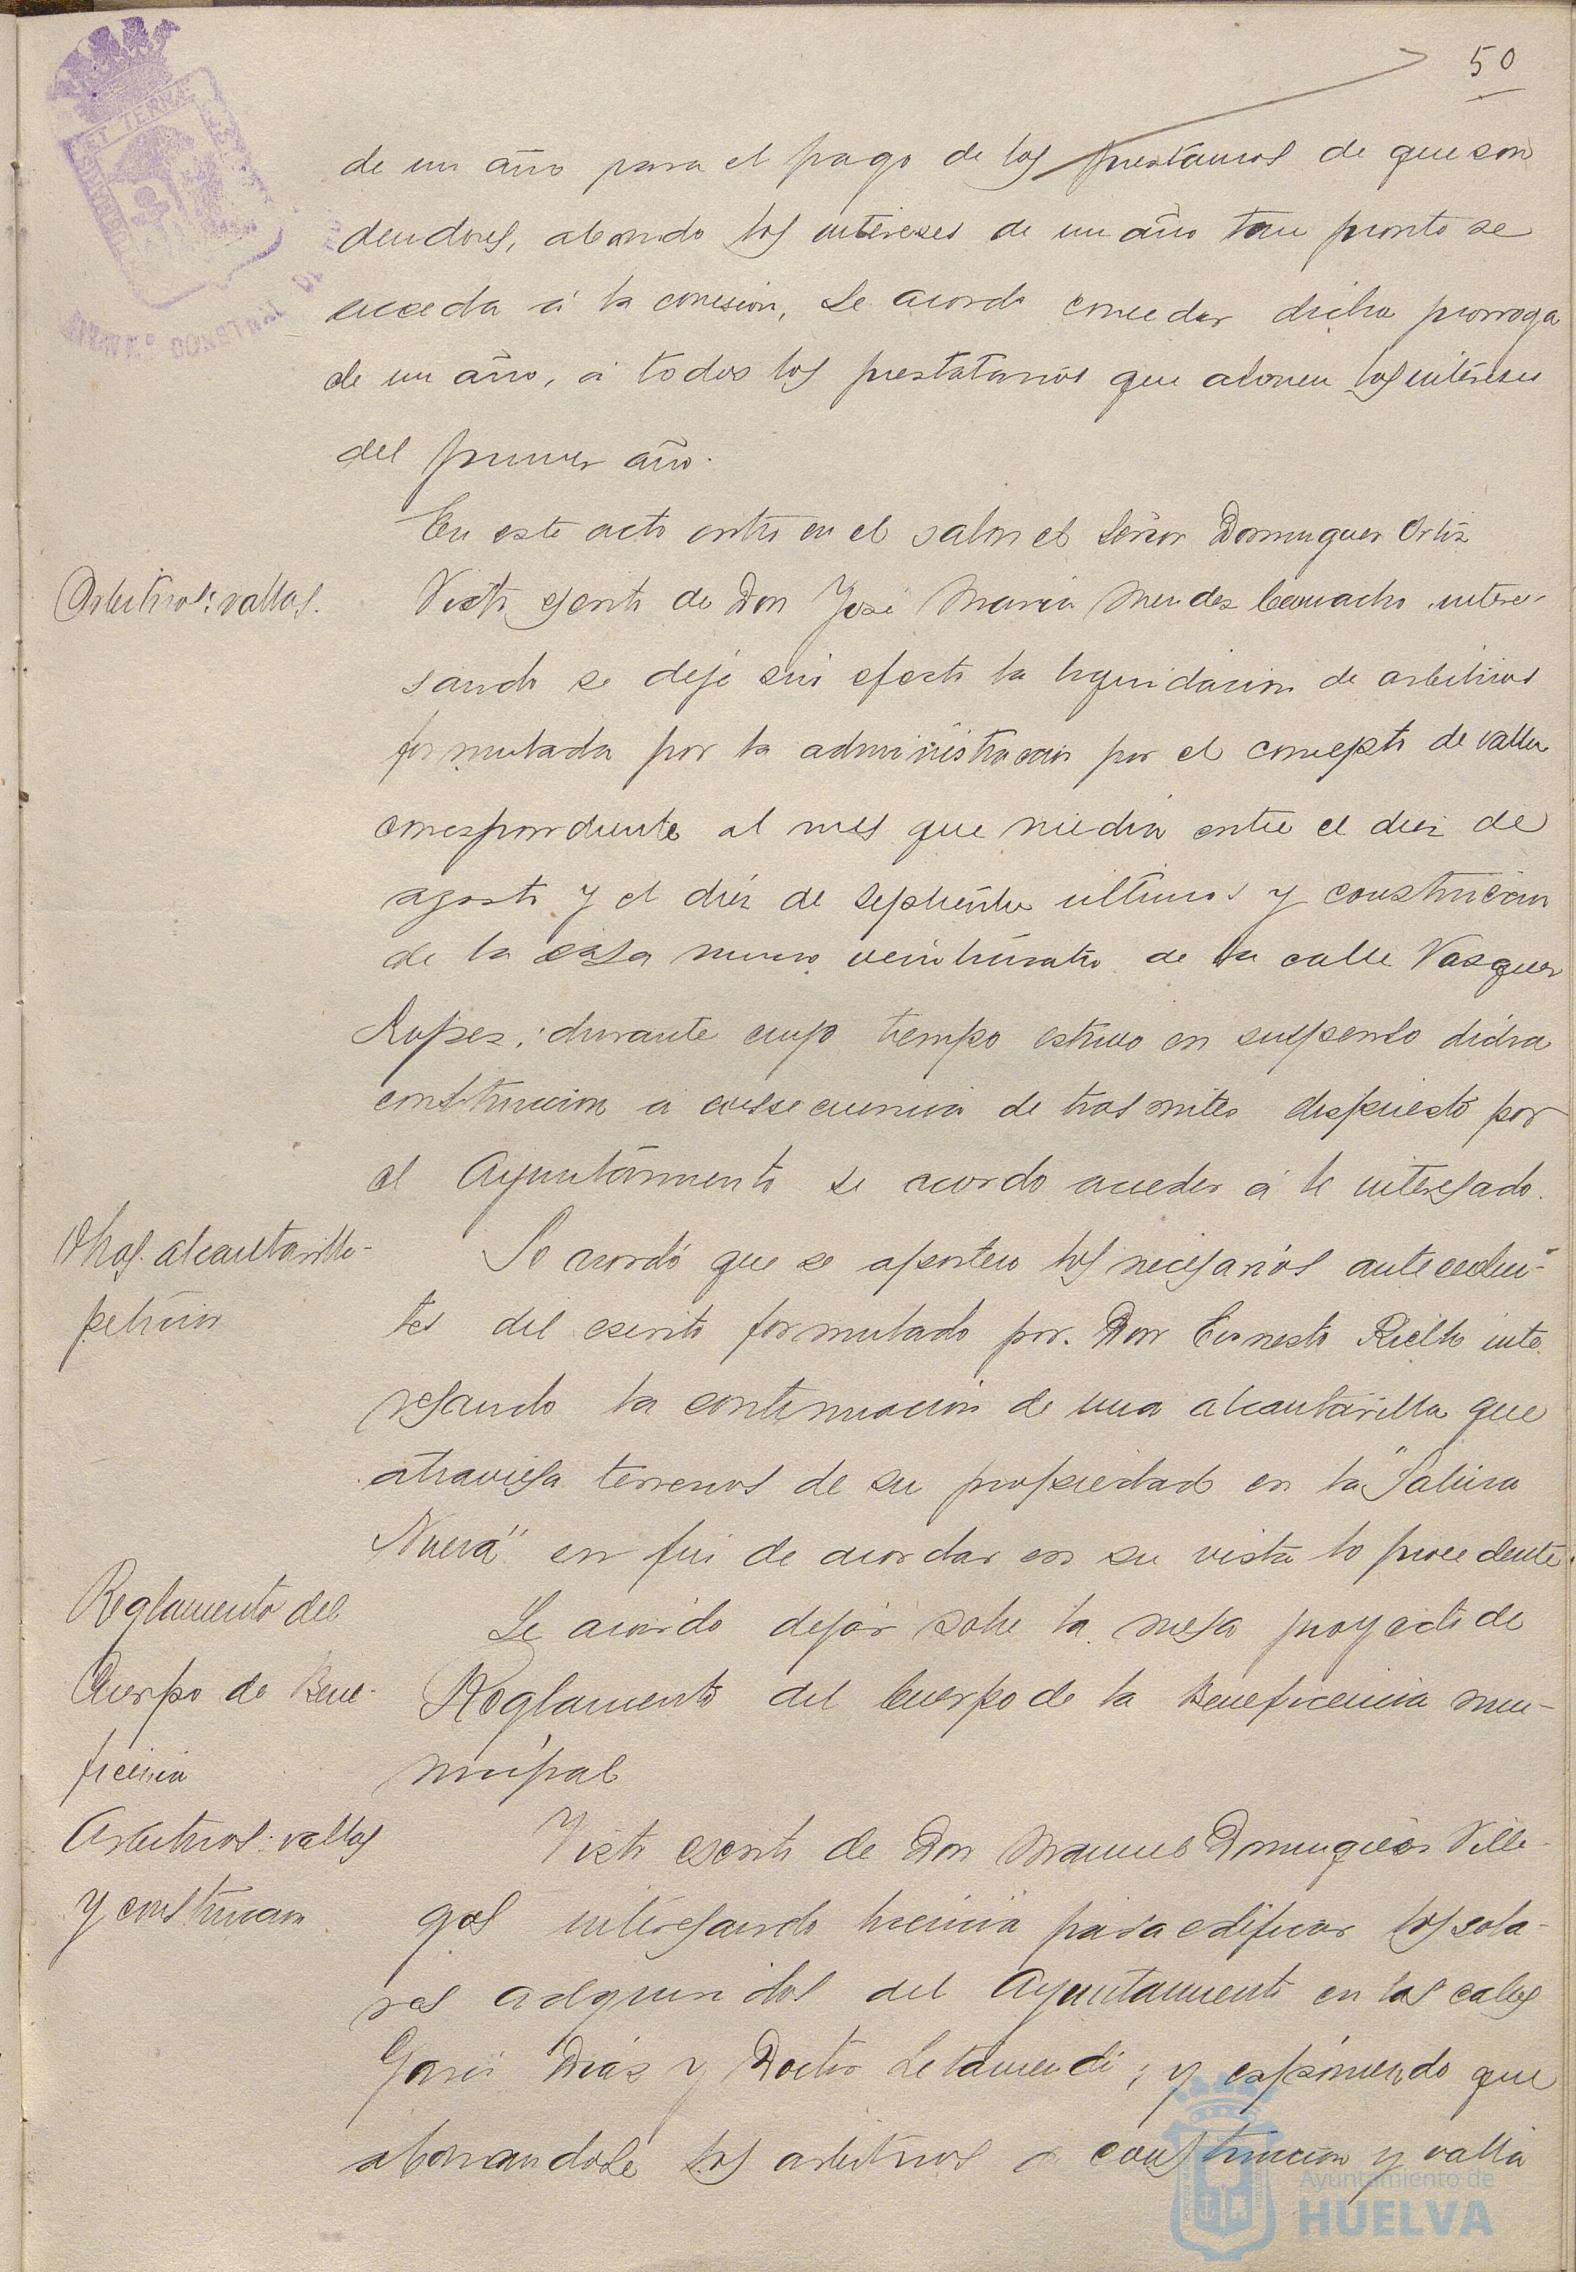 50
de un año para el pago de los prestamos de que son
deudores, abonado los intereses de un año tan pronto se
acceda á la concesion, Se acordó conceder dicha prorroga
de un año, á todos los prestatarios que abonen los intereses
del primer año.
En este acto entró en el salon el Señor Dominguez Ortiz
Arbitrios: vallas.
Visto escrito de Don José Maria Mendez Camacho intere-
sando se deje sin efecto la liquidacion de arbitrios
formulada por la administracion por el concepto de valla
correspondiente al mes que media entre el diez de
agosto y el diez de Septiembre ultimos y construccion
de la casa numero veinticuatro de la calle Vazquez
Lopez; durante cuyo tiempo estuvo en suspenso dicha
construccion a consecuencia de tramites dispuesto por
el Ayuntamiento se acordo acceder á lo interesado.
Obras. alcantarilla-
peticion
Se acordó que se aporten los necesarios anteceden-
tes del escrito formulado por Don Ernesto Rielto inte
resando la continuacion de una alcantarilla que
atraviesa terrenos de su propiedad en la "Salina
Nueva" en fin de acordar en su vista lo procedente.
Reglamento del
Cuerpo de Bene-
ficencia
Se acordo dejar sobre la mesa proyecto de
Reglamento del Cuerpo de la Beneficencia mu-
nicipal
Arbitrios: vallas
y construccion
Visto escrito de Don Manuel Dominguez Ville-
gas interesando licencia para edificar los sola-
res adquiridos del Ayuntamiento en las calles
Garci Diaz y Doctor Letamendi; y exponiendo que
abonandose los arbitrios de construccion y valla
Ayuntamiento de
HUELVA